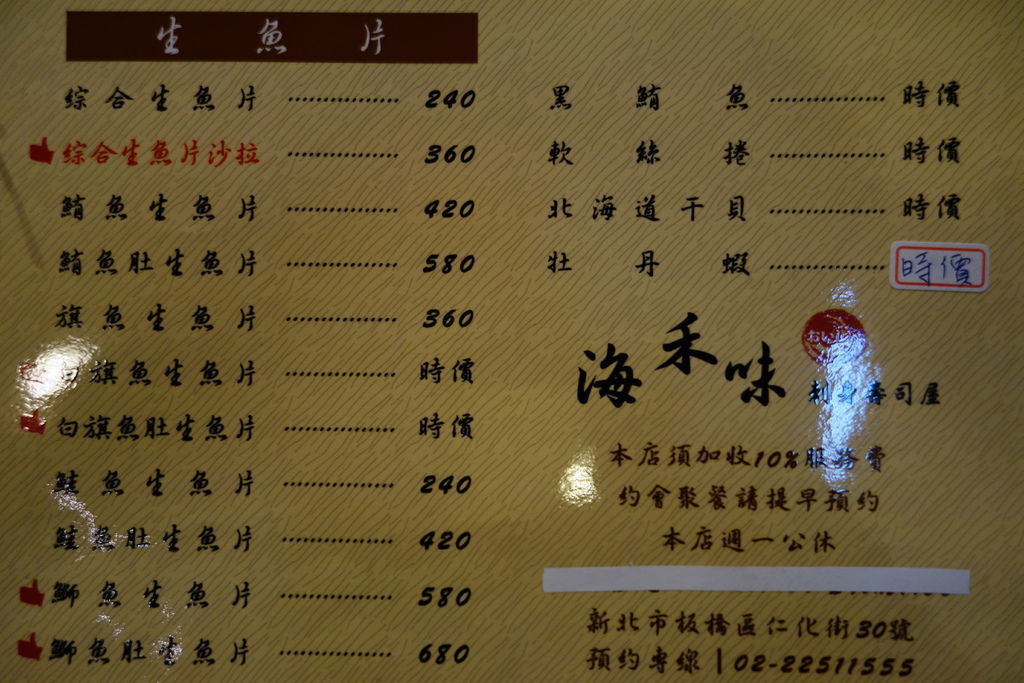 生魚片
綜合生魚片 ................ 240
綜合生魚片沙拉 ................ 360
鮪魚生魚片 ................ 420
鮪魚肚生魚片 ................ 580
旗魚生魚片 ................ 360
白旗魚生魚片 ................ 時價
白旗魚肚生魚片 ................ 時價
鮭魚生魚片 ................ 240
鮭魚肚生魚片 ................ 420
鰤魚生魚片 ................ 580
鰤魚肚生魚片 ................ 680
黑鮪魚 ................ 時價
軟絲捲 ................ 時價
北海道干貝 ................ 時價
牡丹蝦 ................ 時價
海禾味
刺身壽司屋
本店須加收10%服務費
約會聚餐請提早預約
本店週一公休
新北市板橋區仁化街30號
預約專線 | 02-22511555